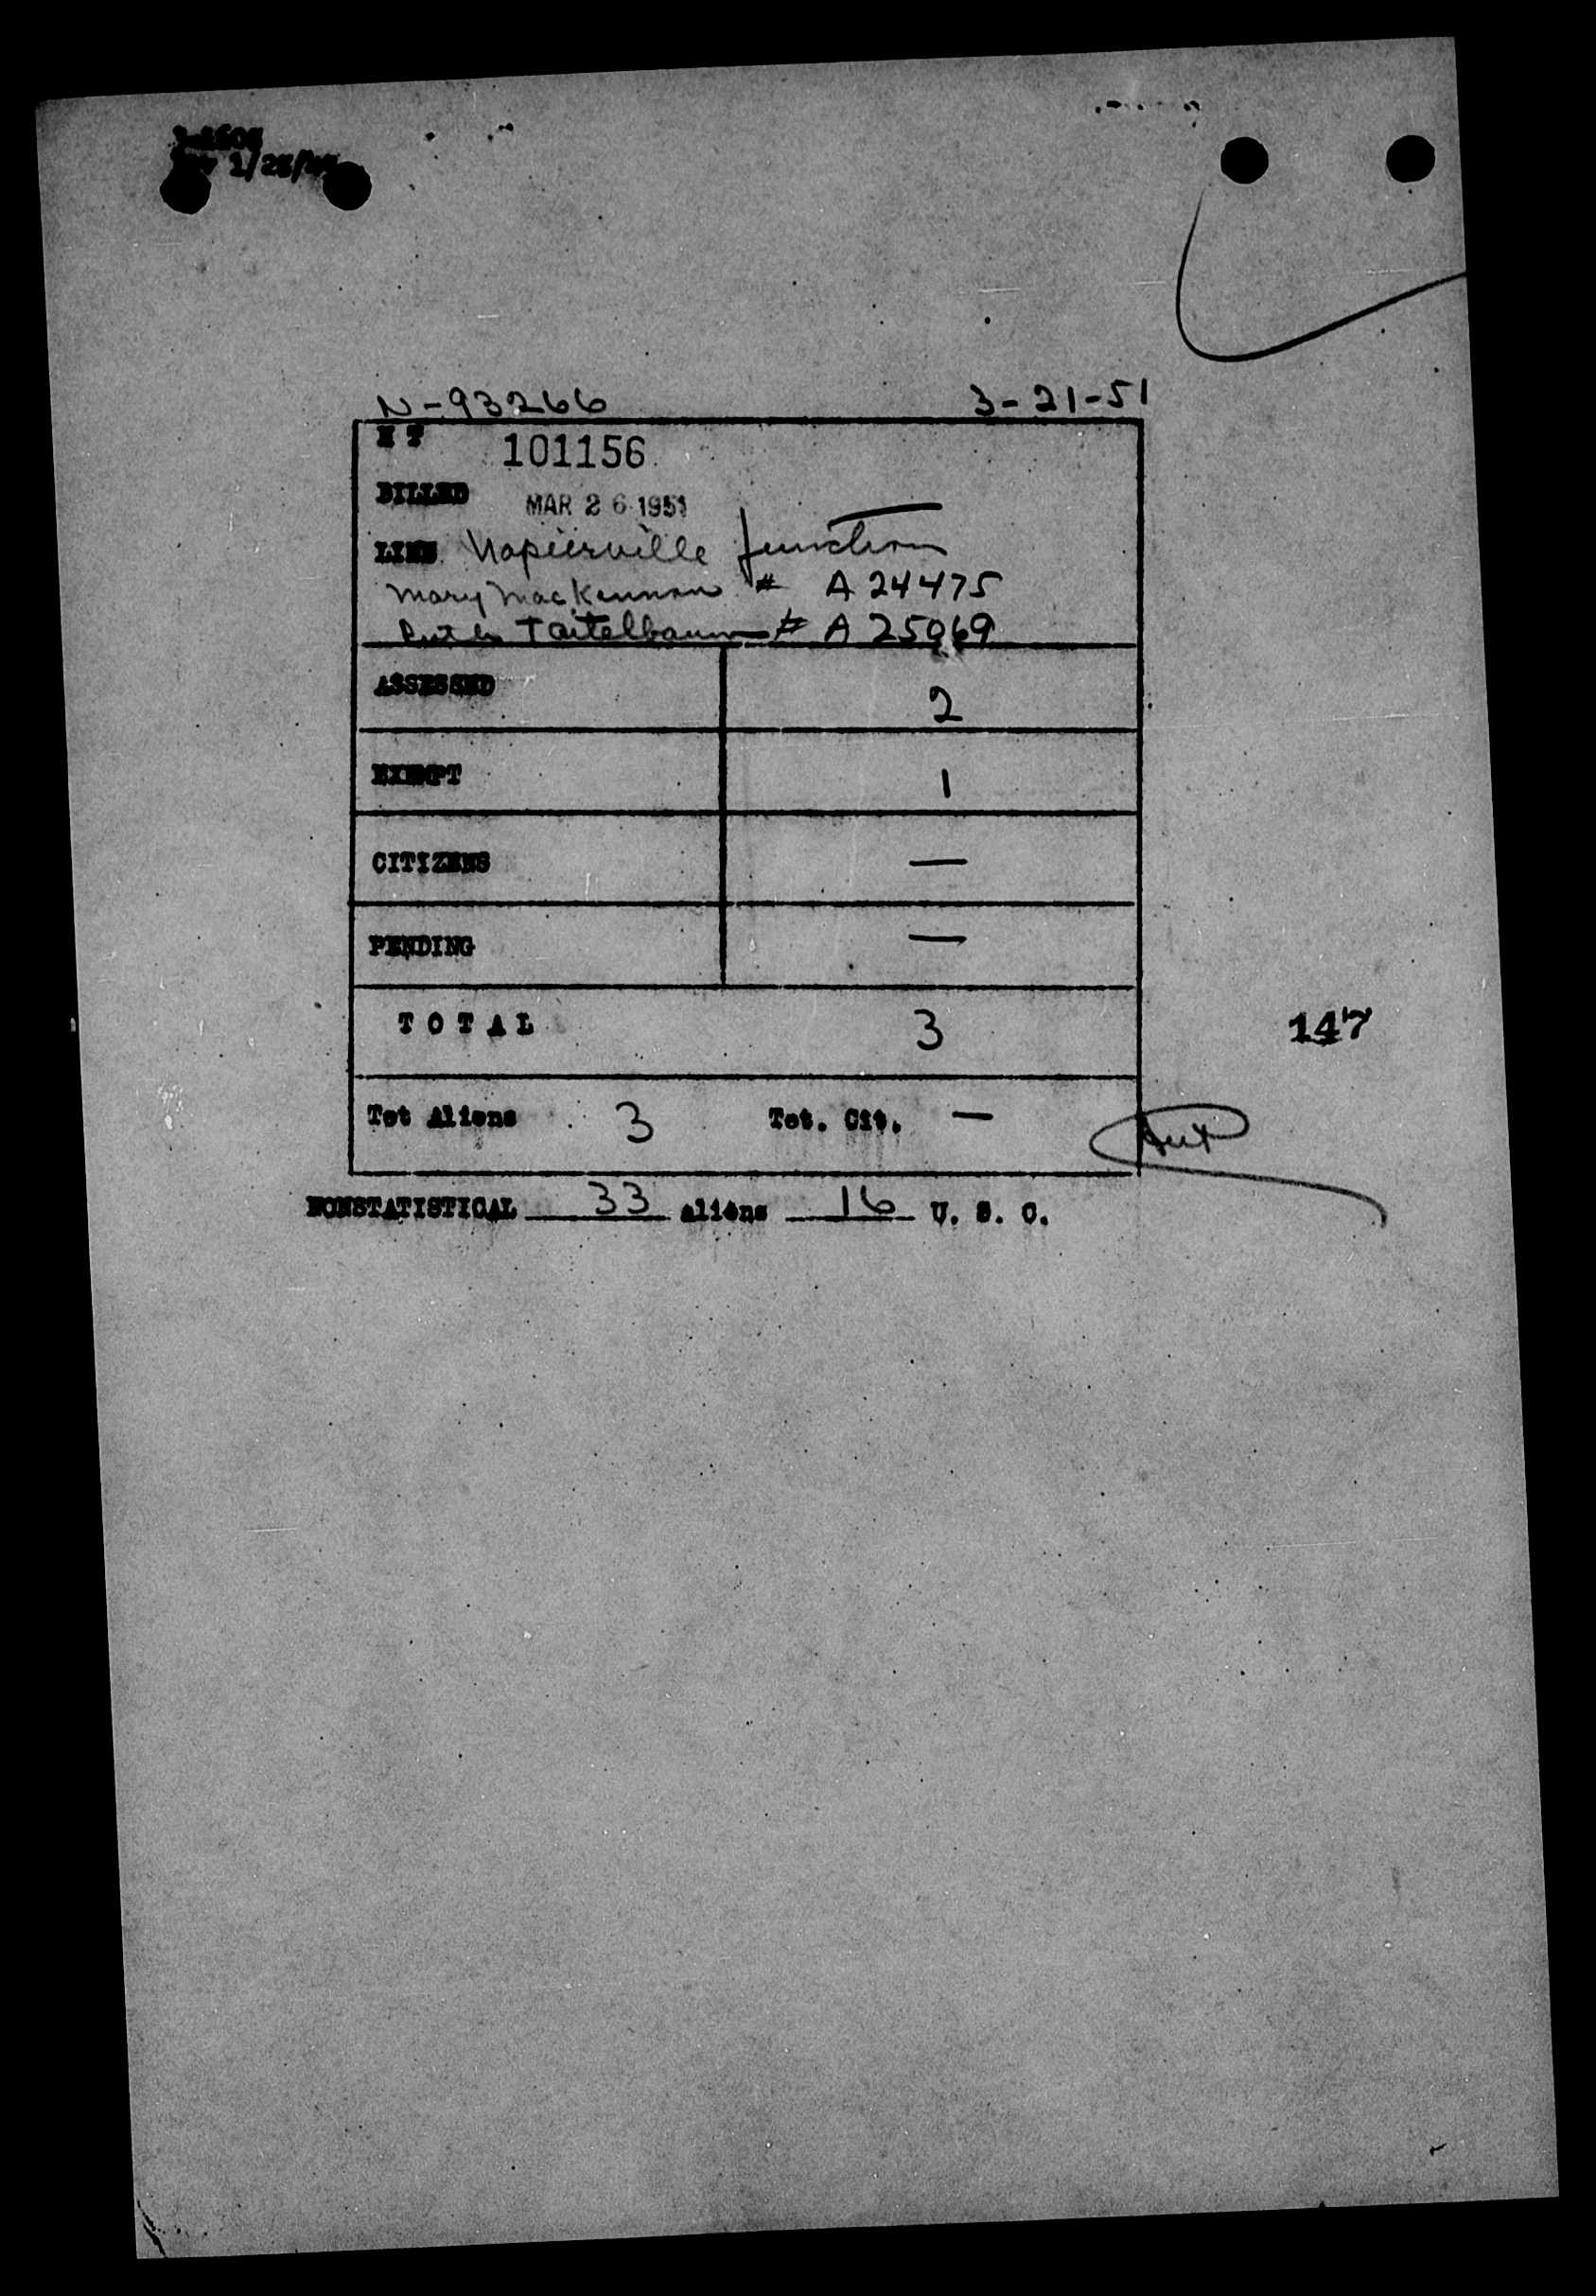 1/25/
N-93266 3-21-51
H T 101156
BILLED MAR 26 1951
LINE Napierville Junction
Mary MacKinnon # A 24475
Ruth Taitelbaum # A 25069
ASSESSED 2
EXEMPT 1
CITIZENS —
PENDING —
TOTAL 3
147
Tot Aliens 3 Tot. Cit. —
NONSTATISTICAL 33 aliens 16 U. S. C.